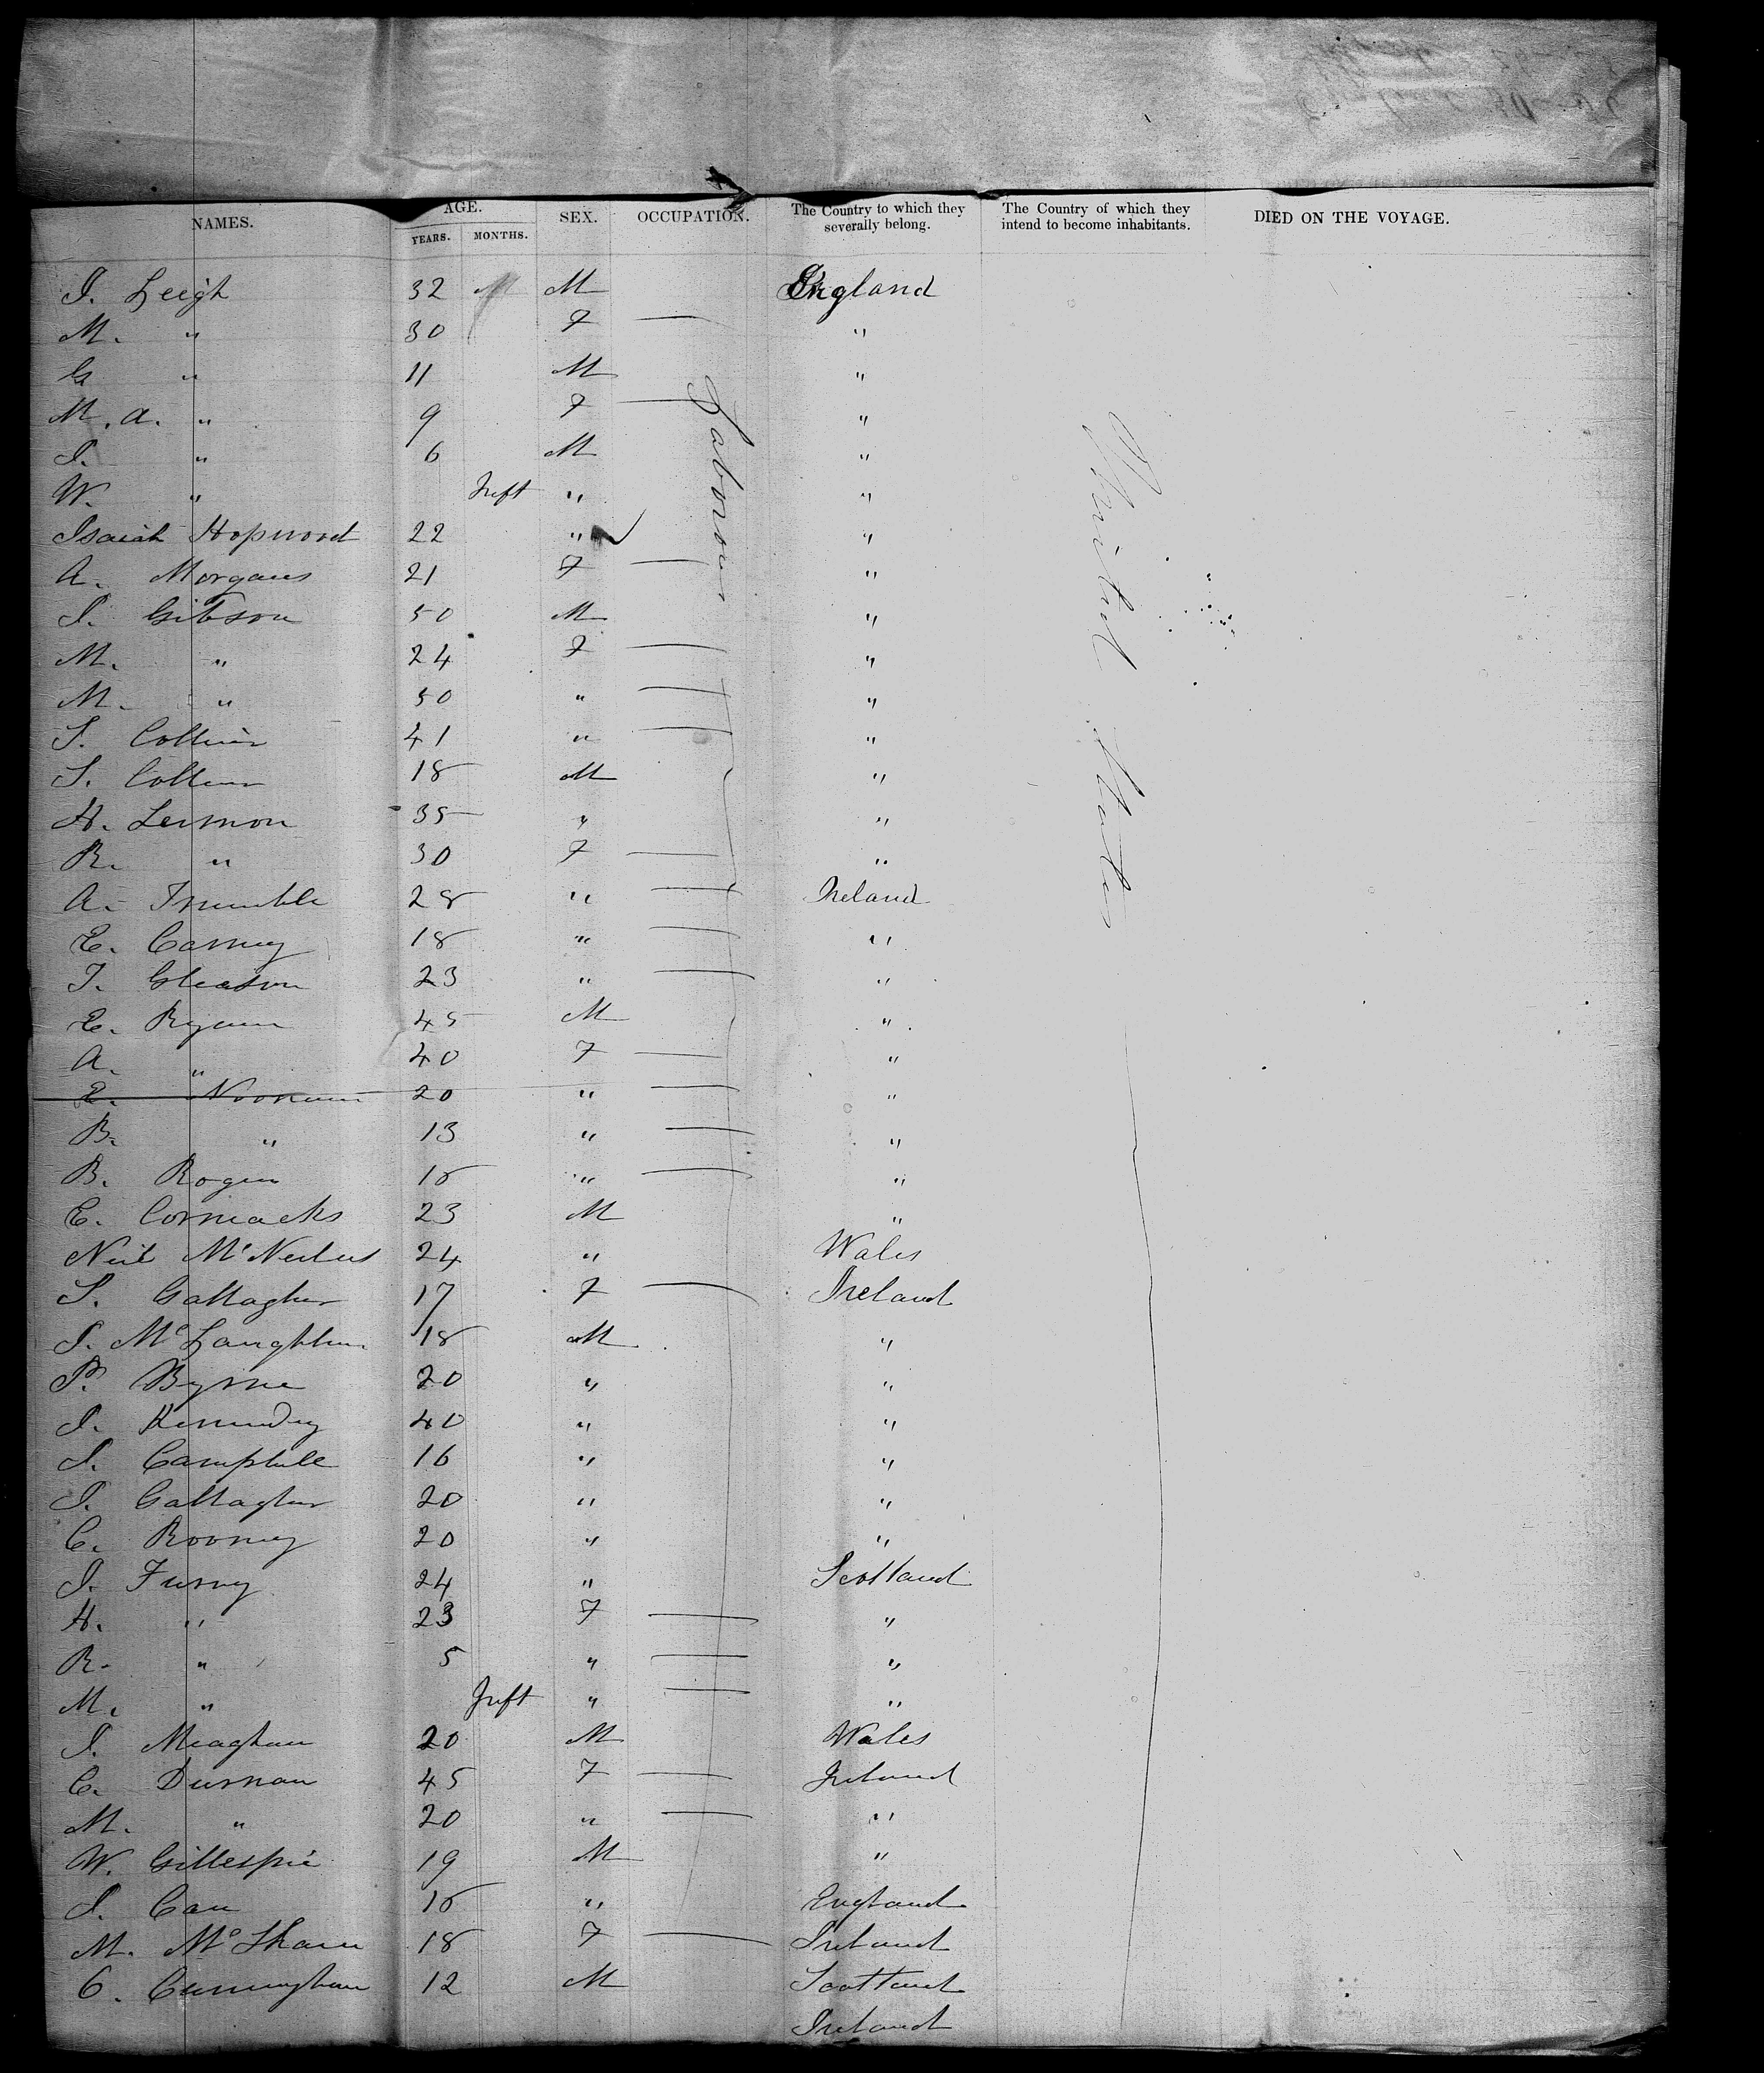 NAMES. AGE. YEARS. MONTHS. SEX. OCCUPATION. The Country to which they severally belong. The Country of which they intend to become inhabitants. DIED ON THE VOYAGE.
J. Leigh 32 M England
M. " 30 F — "
G " 11 M "
M. A. " 9 F — "
J. " 6 M "
W. " Inft " "
Isaiah Hopwood 22 " "
A. Morgans 21 F — "
J. Gibson 50 M "
M. " 24 F — "
M. " 50 " — "
S. 41 " — "
S. 18 M "
H. Lermon 35 " "
R. " 30 F — "
A. Trumble 28 " — Ireland
E. Carney 18 " — "
T. Gleason 23 " — "
E. Ryann 45 M "
A. " 40 F — "
E. Noonan 20 " — "
B. " 13 " — "
B. 18 " — "
E. Cormacks 23 M "
Neil 24 " Wales
S. Gallagher 17 F — Ireland
J. McLaughlin 18 M "
P. Byrne 20 " "
J. Kennedy 40 " "
J. Camphill 16 " "
J. Gallagher 20 " "
C. Rooney 20 " "
J. Furny 24 " Scotland
H. " 23 F — "
R. " 5 " — "
M. " Inft " — "
J. Meaghan 20 M Wales
C. Durnan 45 F — Ireland
M. " 20 " — "
W. Gillespie 19 M "
J. 16 " England
M. 18 F — Ireland
C. Cunningham 12 M Scotland
Ireland
Labourers
United States